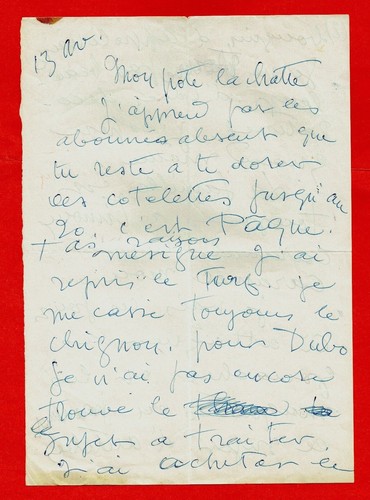 13 av.
Mon pote la chatte
J'apprend par les
abonnés absent que
tu reste a te dorer
les cotelettes jusqu'au
20. c'est Pâque!
t as raison
mesigue j'ai
repris le Turf. je
me casse toujours le
chignon. pour Dubo
je n'ai pas encore
trouvé le
sujet a traiter.
J'ai acheter le